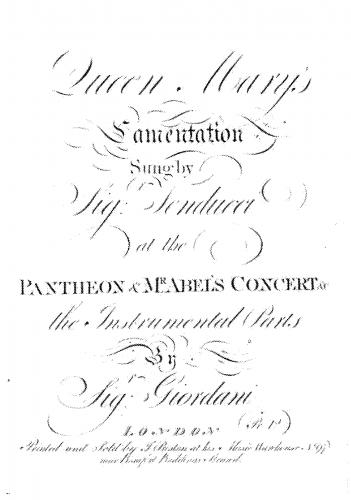 Queen Mary's
Lamentation
Sung by
Sigr. Tenducci
at the
PANTHEON & Mr. ABEL'S CONCERT &c
the Instrumental Parts
By
Sigr. Giordani
LONDON
Pr. 1s.
Printed and Sold by J. Preston at his Music Warehouse No. 97
near Beaufort Buildings Strand.